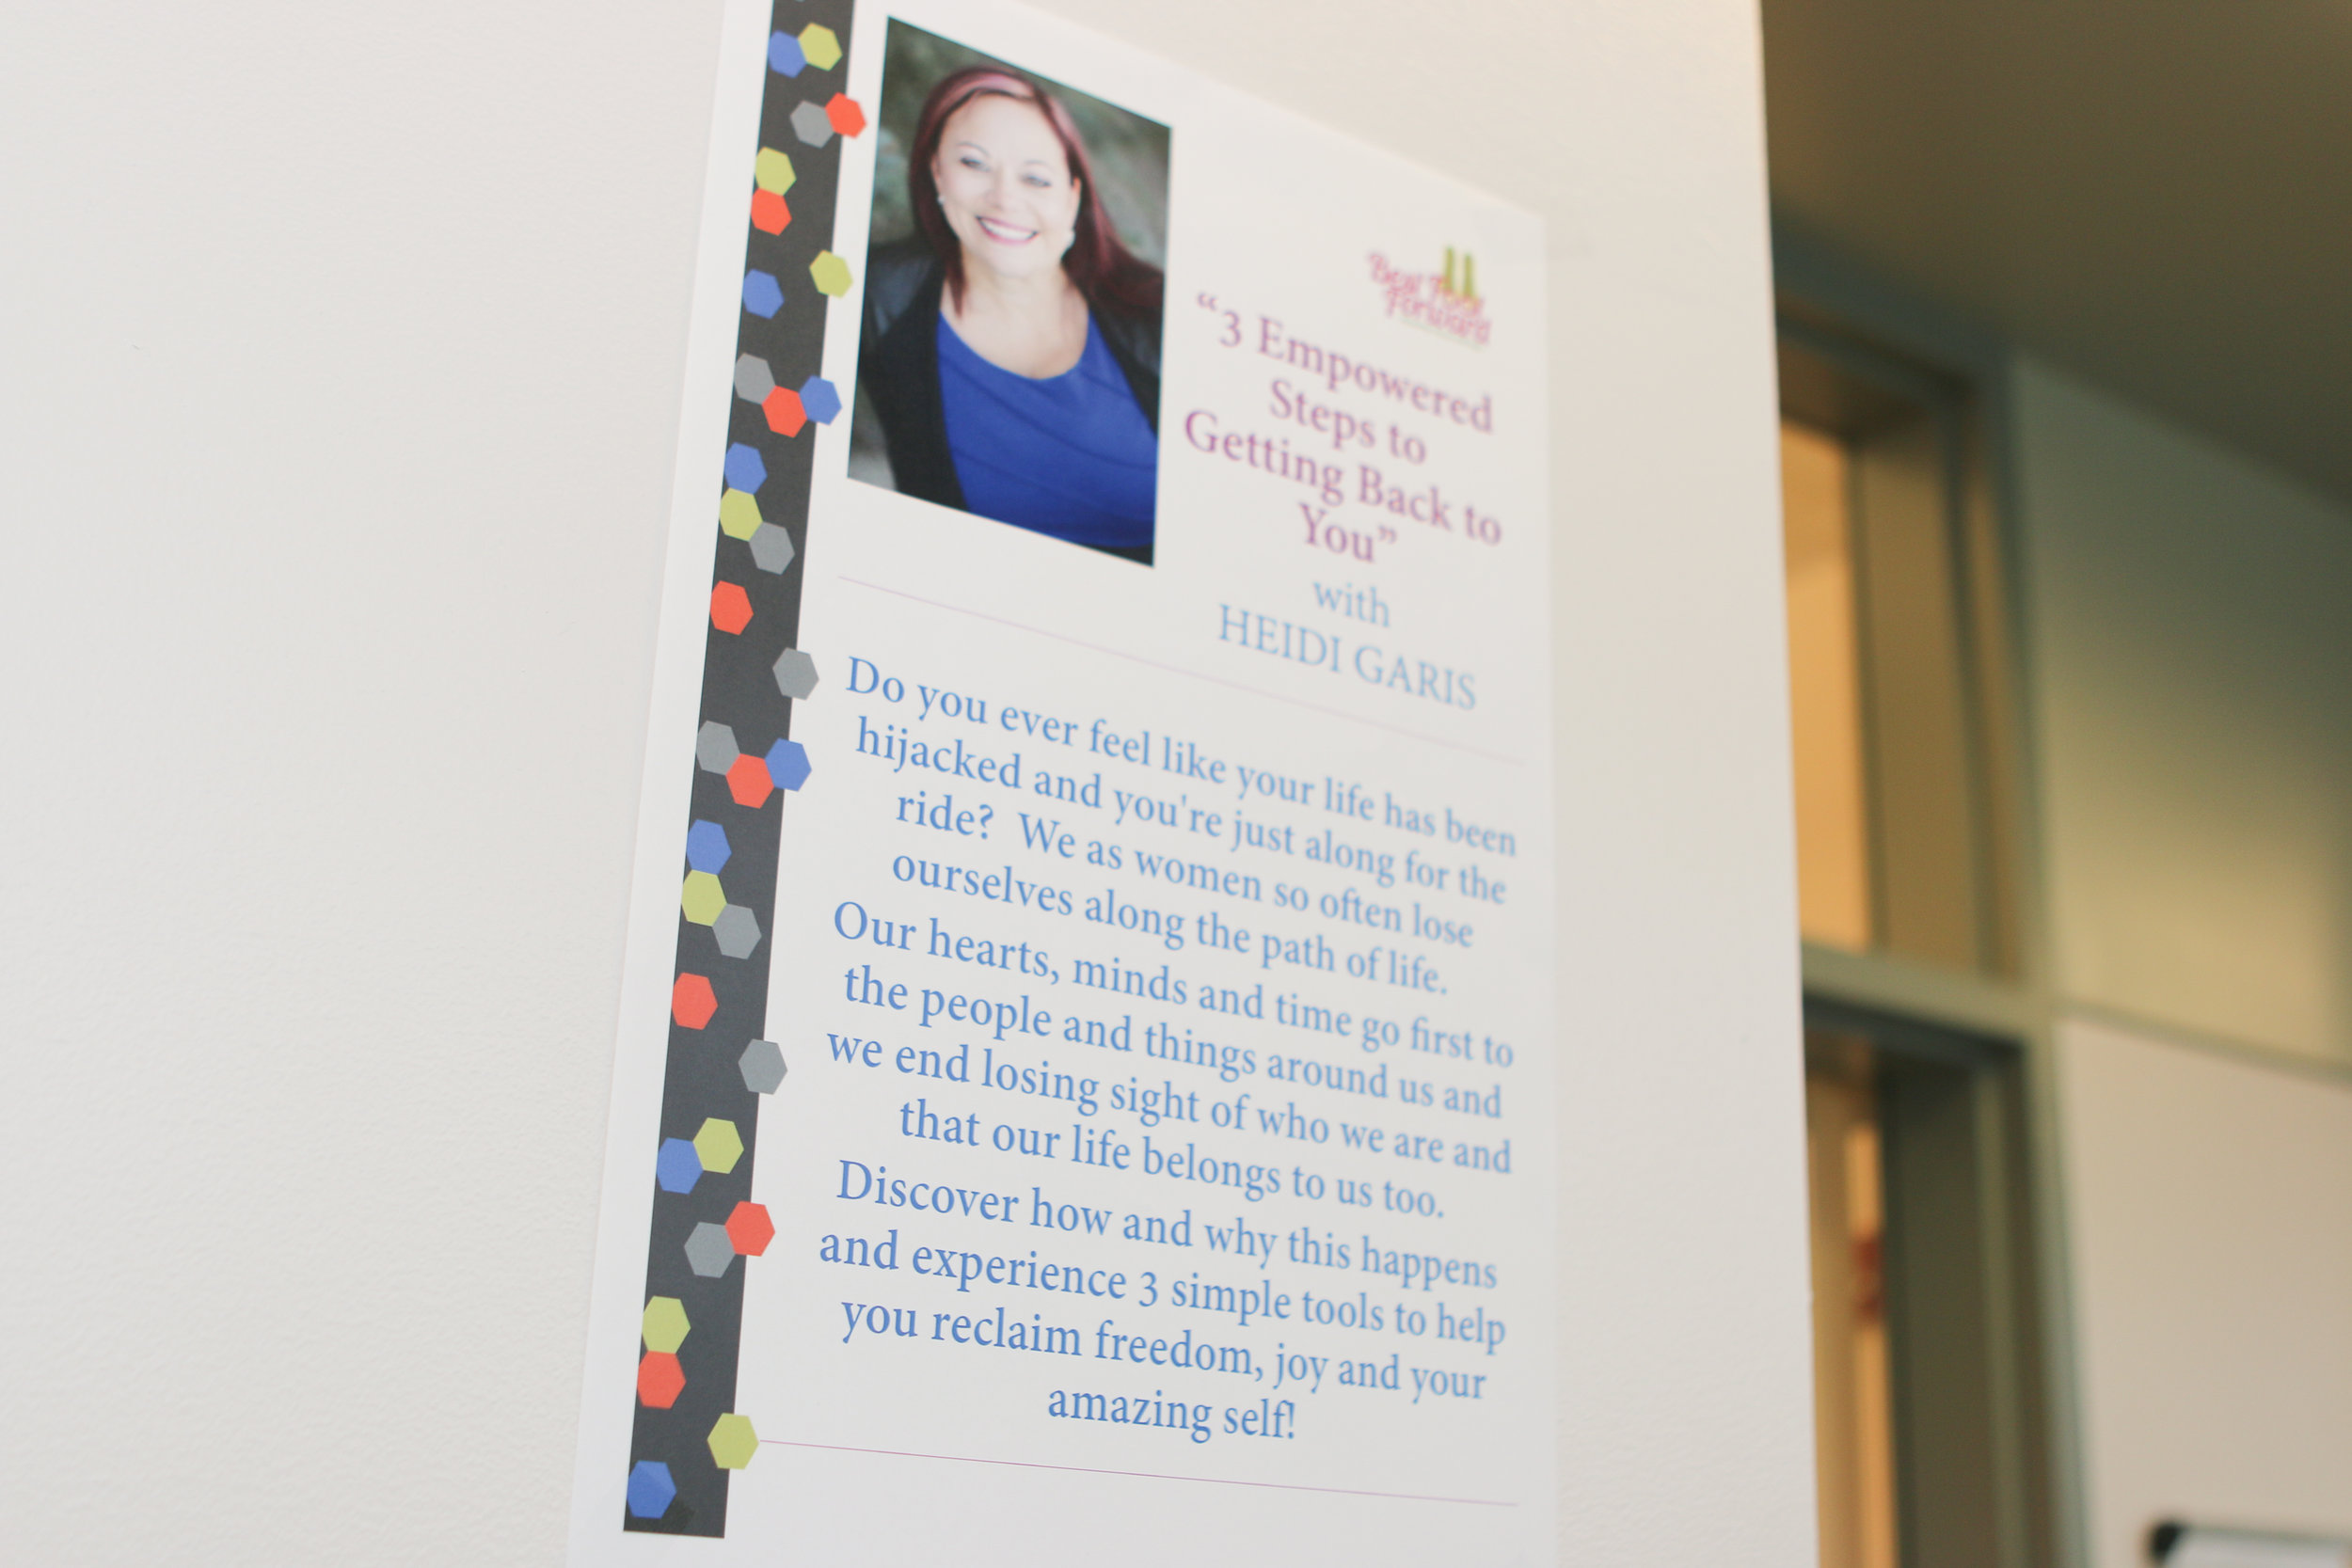 Best Foot
Forward
“3 Empowered
Steps to
Getting Back to
You”
with
HEIDI GARIS
Do you ever feel like your life has been
hijacked and you're just along for the
ride? We as women so often lose
ourselves along the path of life.
Our hearts, minds and time go first to
the people and things around us and
we end losing sight of who we are and
that our life belongs to us too.
Discover how and why this happens
and experience 3 simple tools to help
you reclaim freedom, joy and your
amazing self!